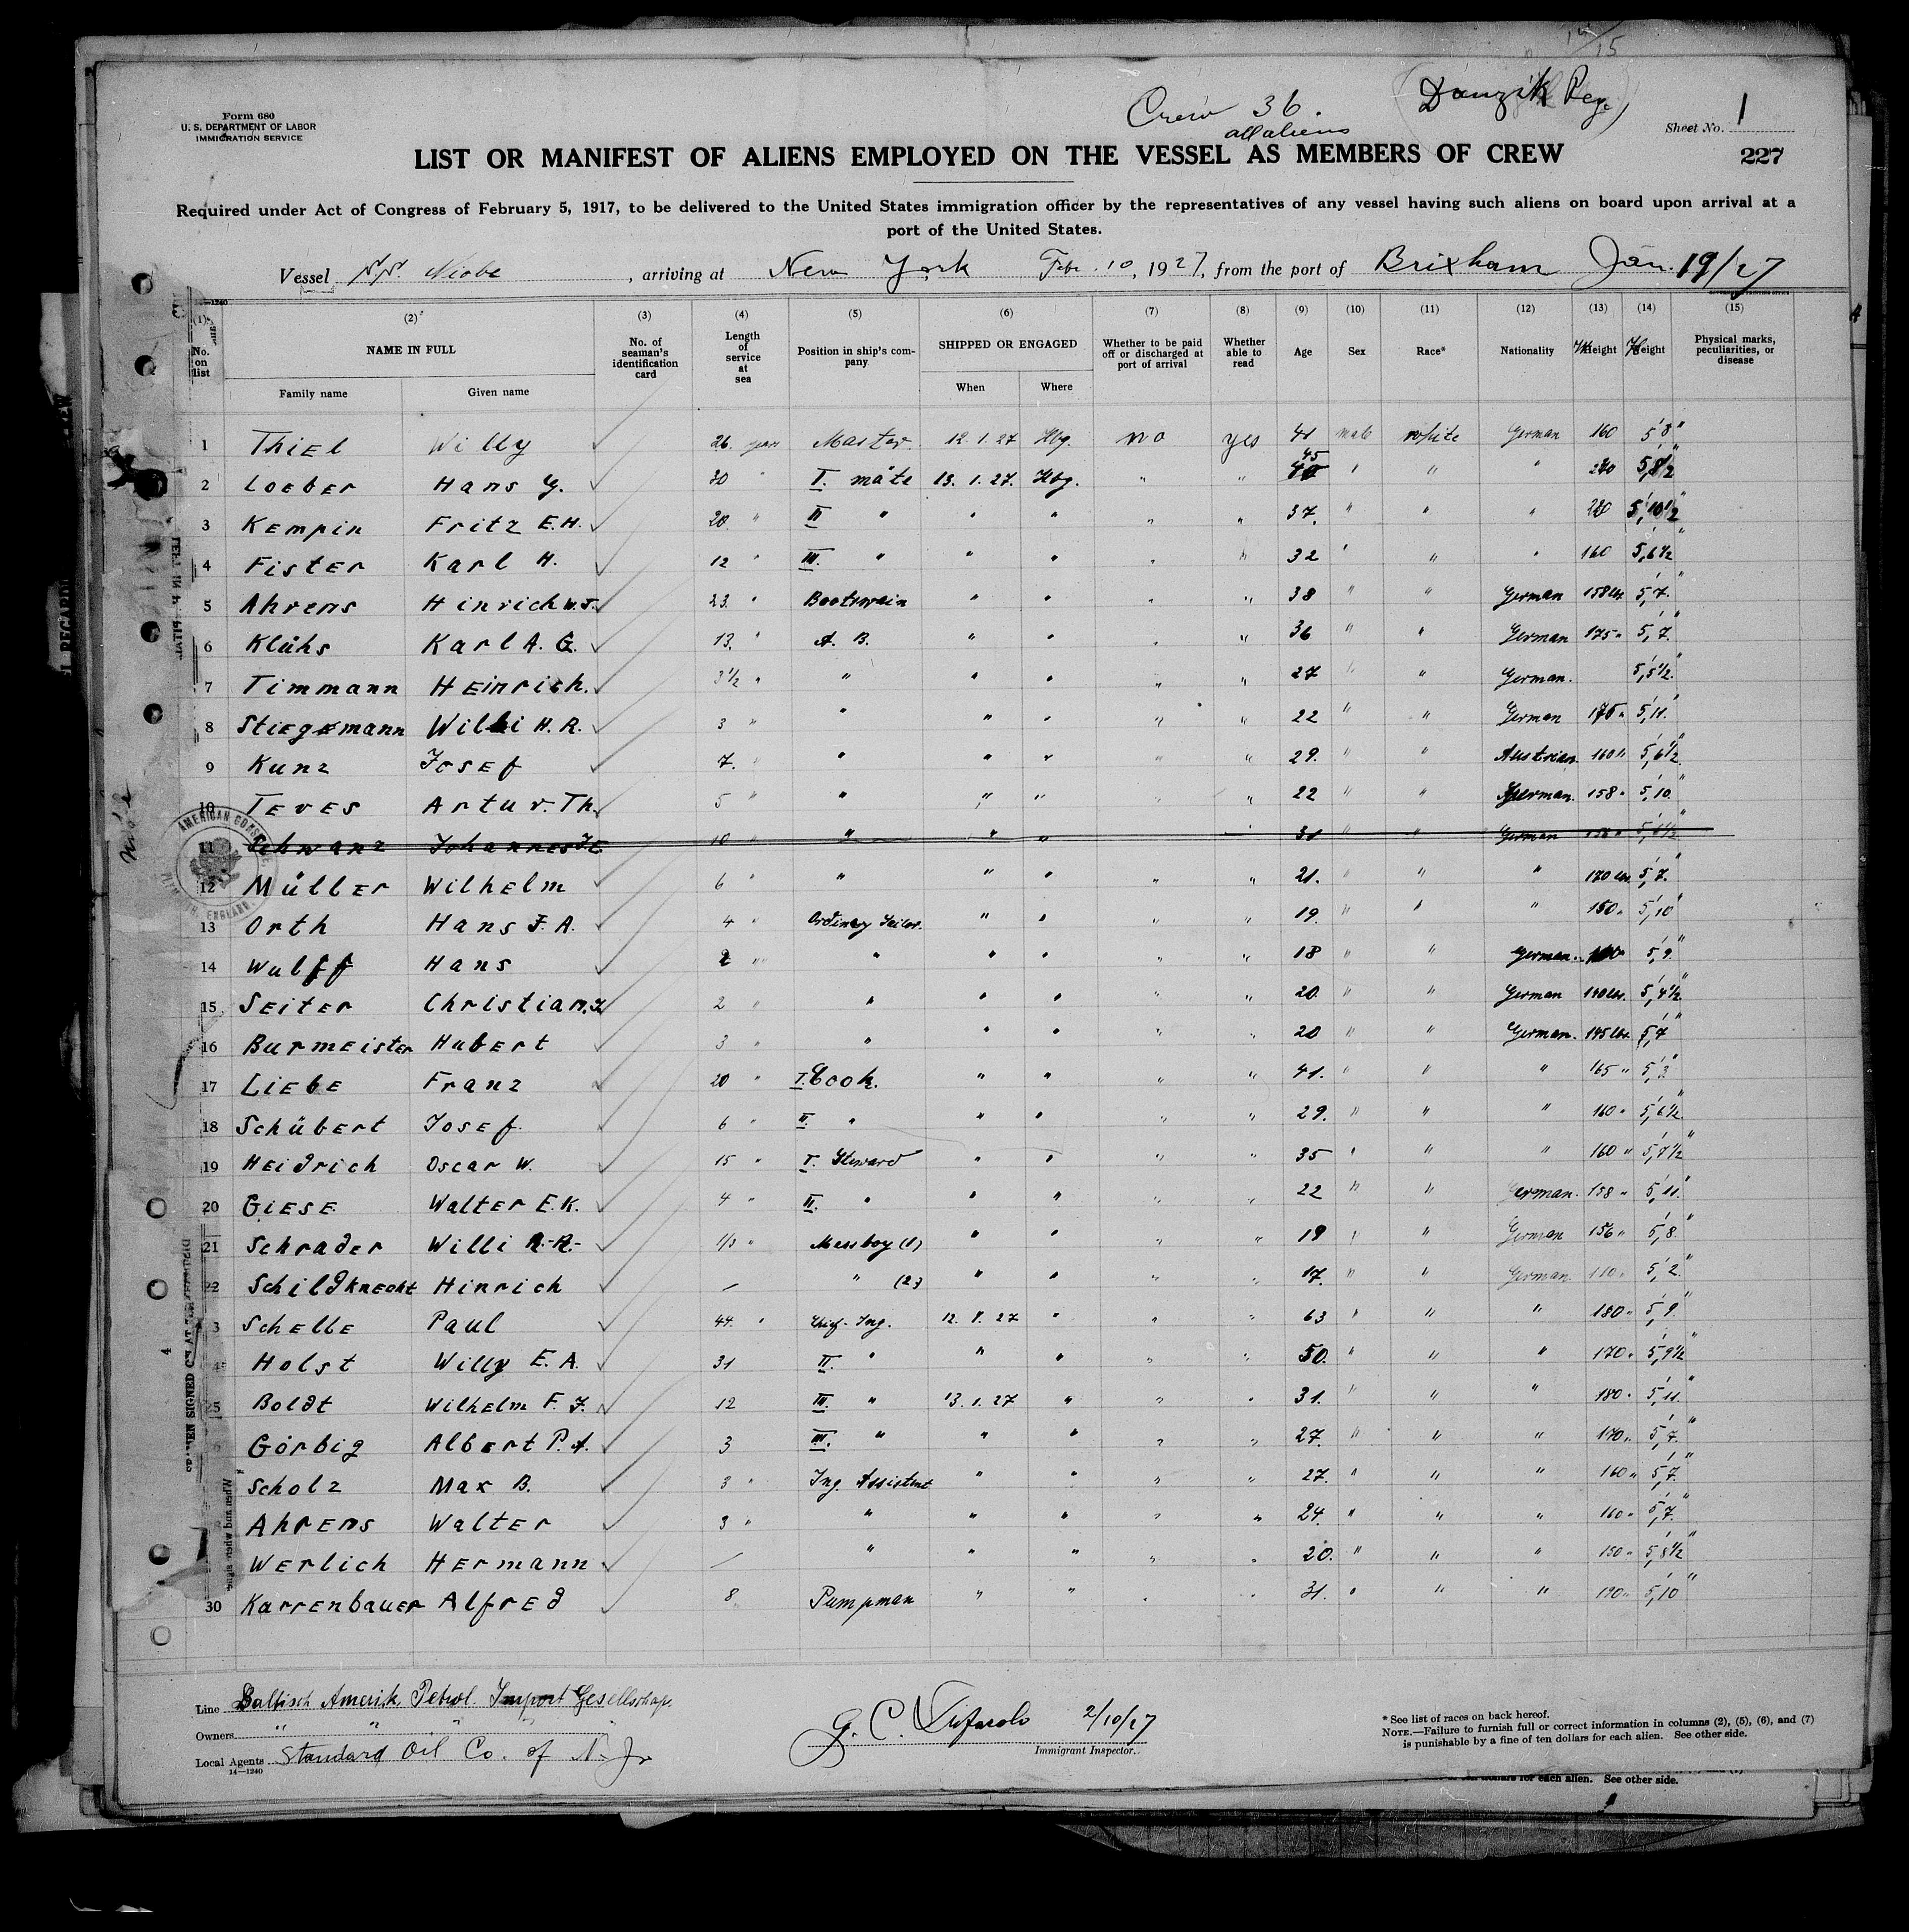 14/15
Crew 36.
all aliens
(Danzik Reg.)
Form 680
U. S. DEPARTMENT OF LABOR
IMMIGRATION SERVICE
Sheet No. 1
LIST OR MANIFEST OF ALIENS EMPLOYED ON THE VESSEL AS MEMBERS OF CREW
227
Required under Act of Congress of February 5, 1917, to be delivered to the United States immigration officer by the representatives of any vessel having such aliens on board upon arrival at a
port of the United States.
Vessel S.S. Niobe, arriving at New York Febr. 10, 1927, from the port of Brixham Jan. 19/27
(1) (2) (3) (4) (5) (6) (7) (8) (9) (10) (11) (12) (13) (14) (15)
No. on list NAME IN FULL No. of seaman's identification card Length of service at sea Position in ship's company SHIPPED OR ENGAGED Whether to be paid off or discharged at port of arrival Whether able to read Age Sex Race* Nationality Weight Height Physical marks, peculiarities, or disease
Family name Given name When Where
1 Thiel Willy 26 years Master 12.1.27 Hbg. no yes 41 male white German 160 5'8"
2 Loeber Hans G. 30 " I. mate 13.1.27. Hbg. " " 45 " " " 5'8½"
3 Kempin Fritz E.H. 20 " II " " " " " 37. " " " 220 5'10½"
4 Fister Karl H. 12 " III. " " " " " 32 " " " 160 5'6½"
5 Ahrens Hinrich W.J. 23. " Bootswain " " " " 38 " " German 158 lbs. 5'7."
6 Klühs Karl A. G. 13. " A. B. " " " " 36 " " German 175 " 5'7."
7 Timmann Heinrich. 3½ " " " " " " 27 " " German. 5'5½"
8 Stiegemann Willi H. R. 3 " " " " " " 22 " " German 175 " 5'11."
9 Kunz Josef 7. " " " " " " 29. " " Austrian 160 " 5'6½"
10 Teves Artur. Th. 5 " " " " " " 22 " " German. 158 " 5'10"
11 Schwanz Johannes 10 " " " " 31 " " German
12 Müller Wilhelm 6 " " " " " " 21. " " " 170 lbs. 5'7."
13 Orth Hans F. A. 4 " Ordinary Sailor. " " " " 19. " " " 150 " 5'10"
14 Wulff Hans 2 " " " " " " 18 " " German. 5'9."
15 Seiter Christian. J. 2 " " " " " " 20. " " German 140 lbs. 5'4½"
16 Burmeister Hubert 3 " " " " " 20 " " German. 145 lbs. 5'7"
17 Liebe Franz 20 " I. Cook. " " " " 41. " " " 165 " 5'3"
18 Schübert Josef 6 " II. " " " " " 29. " " " 160 " 5'6½"
19 Heidrich Oscar W. 15 " I. Steward " " " " 35 " " " 160 " 5'7½"
20 Giese Walter E.K. 4 " II. " " " " 22 " " German. 158 " 5'11."
21 Schrader Willi R. R. 1/3 " Messboy (1) " " " " 19 " " German 156 " 5'8."
22 Schildknecht Hinrich — " (2) " " " " 17. " " German 110 " 5'2."
3 Schelle Paul 44. " Chief- Ing. 12.1.27 " " " 63 " " " 180 " 5'9"
Holst Willy E. A. 31 II. " " " " " 50. " " " 170 " 5'9½"
25 Boldt Wilhelm F. J. 12 III. " 13.1.27 " " " 31. " " " 180 " 5'11."
Görbig Albert P. A. 3 III. " " " " " 27. " " " 170 " 5'7."
Scholz Max B. 3 " Ing. Assistent " " " " 27. " " " 160 " 5'7."
Ahrens Walter 3 " " " " " " 24. " " " 160 " 5'7."
Werlich Hermann — " " " " " 20. " " " 150 " 5'8½"
30 Karrenbauer Alfred 8 Pumpman " " " " 31. " " " 170 " 5'10"
AMERICAN CONSUL
ENGLAND.
Line Baltisch Amerik. Petrol. Import Gesellschap.
Owners " " " "
Local Agents Standard Oil Co. of N. Jr
14—1240
G. C. 2/10/27
Immigrant Inspector.
* See list of races on back hereof.
NOTE.—Failure to furnish full or correct information in columns (2), (5), (6), and (7)
is punishable by a fine of ten dollars for each alien. See other side.
dollars for each alien. See other side.